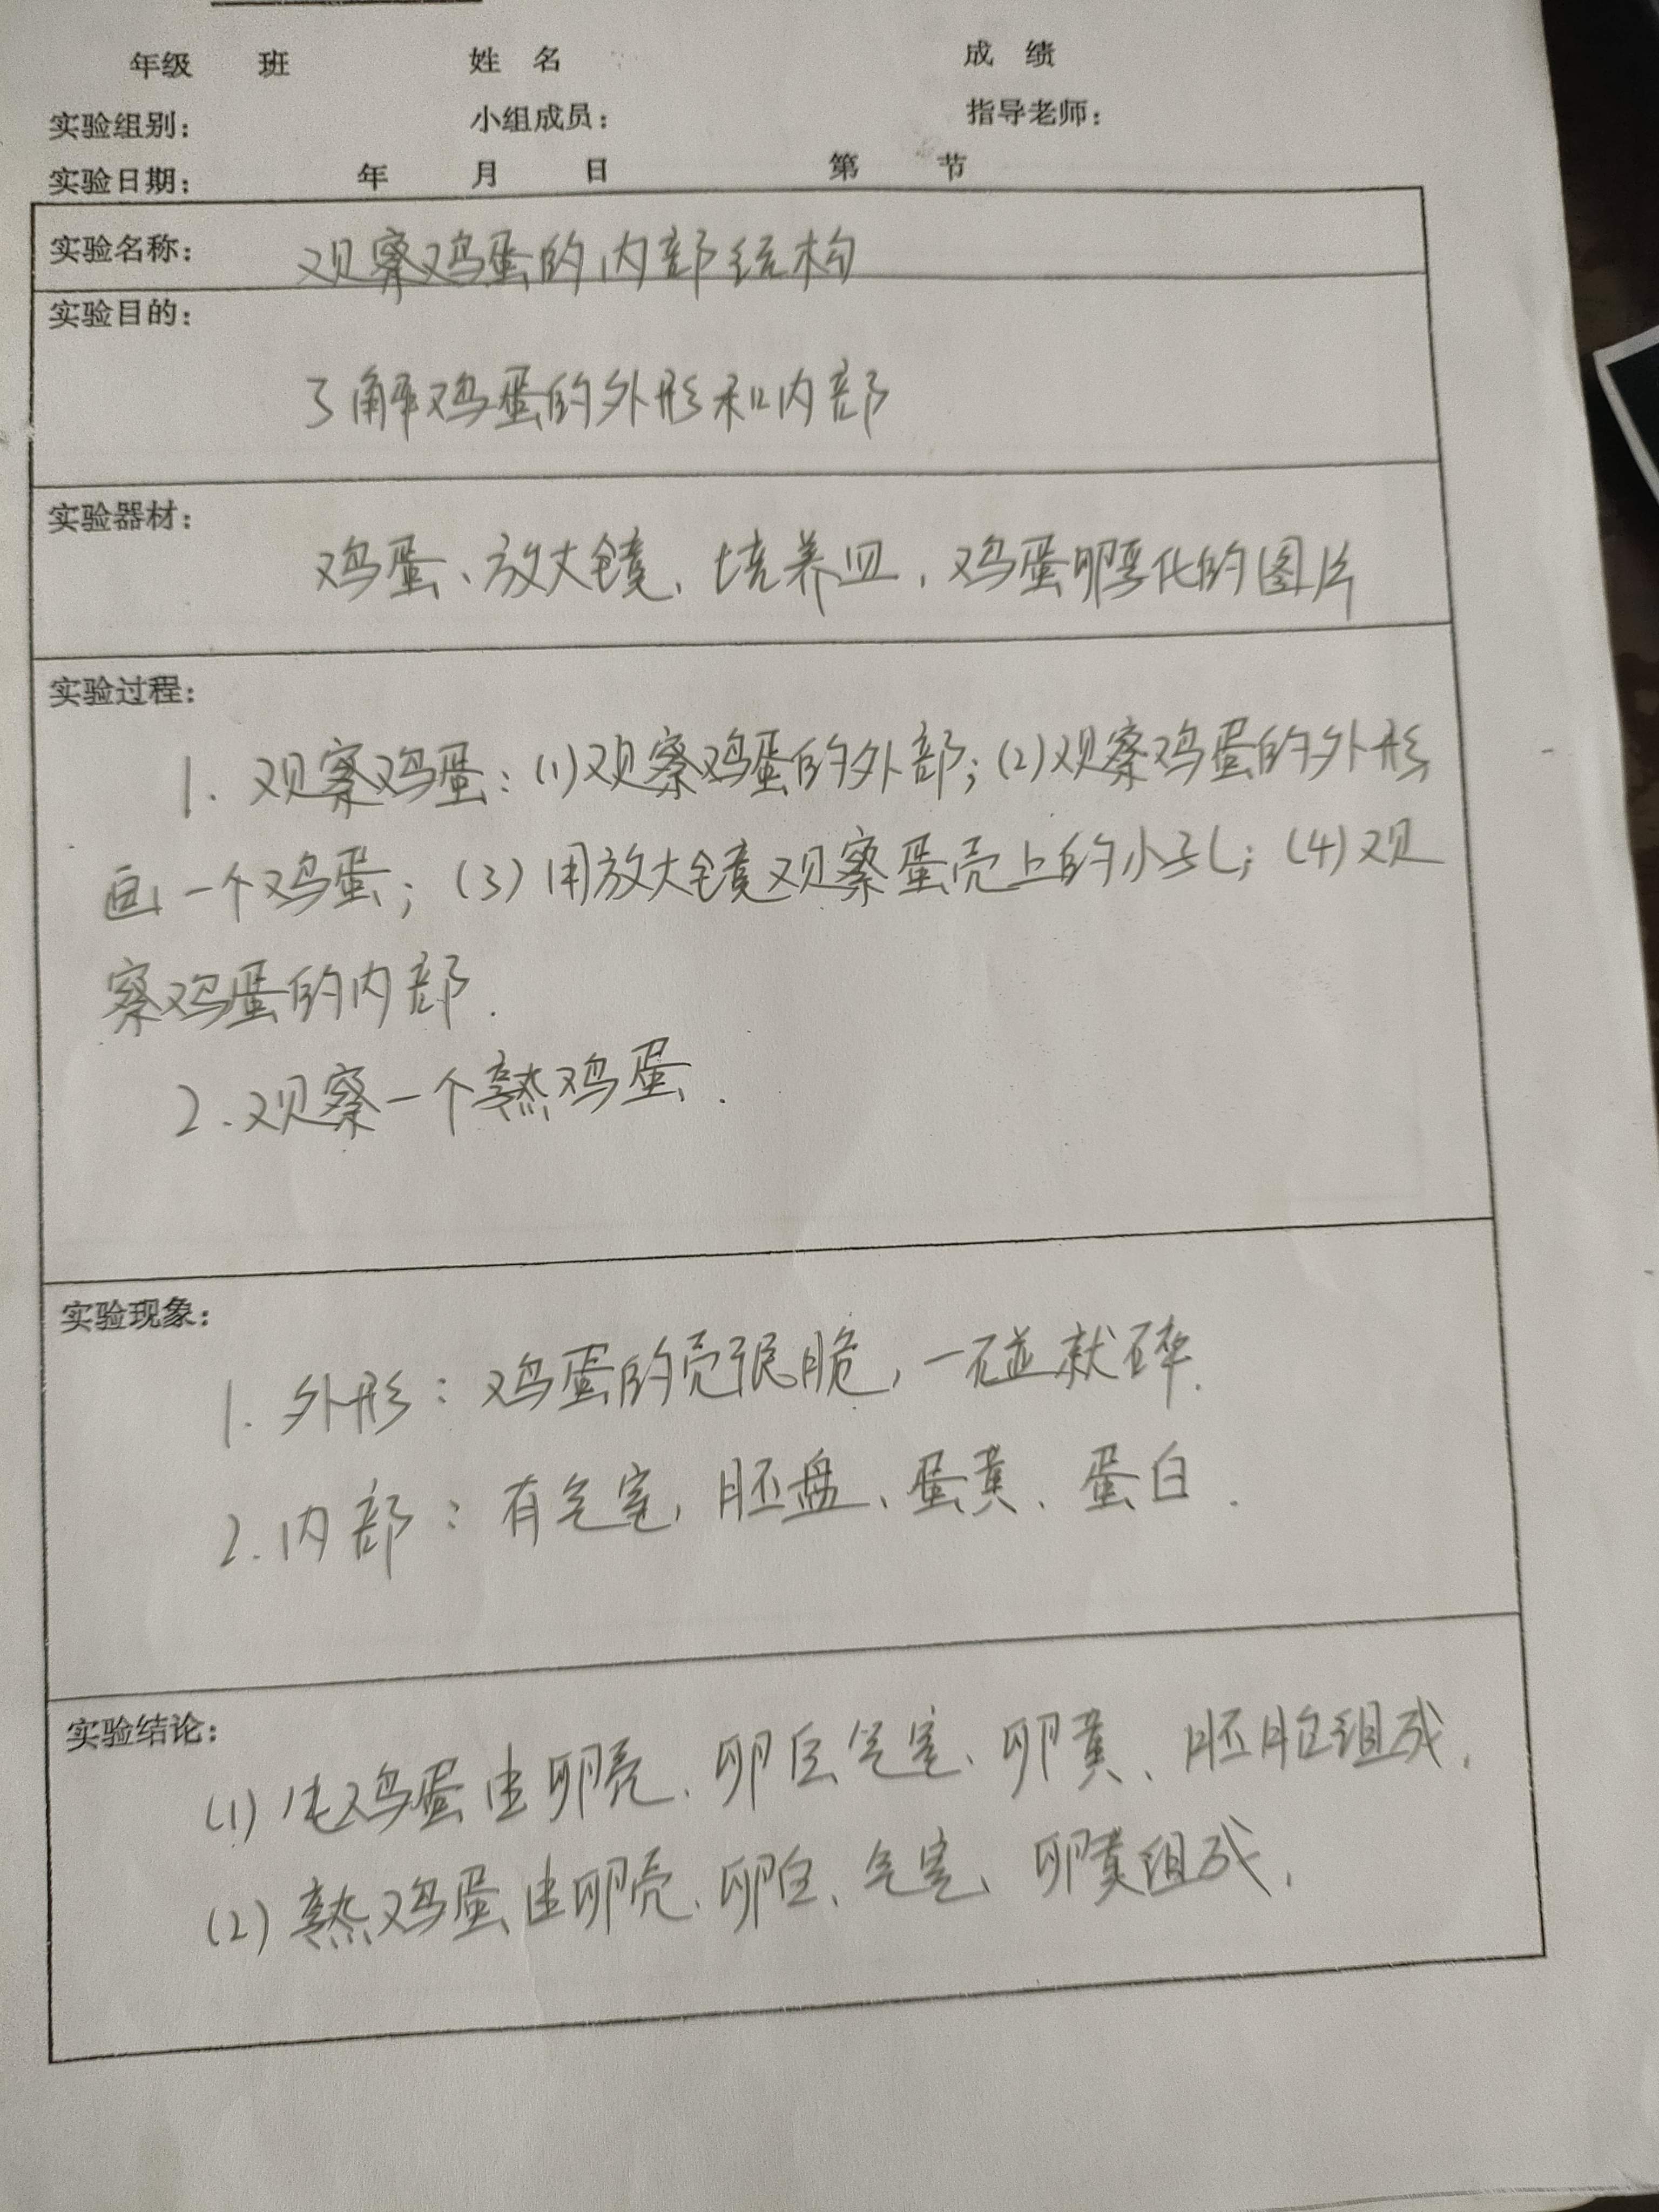 年级 班 姓 名 成 绩
实验组别： 小组成员： 指导老师：
实验日期： 年 月 日 第 节
实验名称： 观察鸡蛋的内部结构
实验目的：
了解鸡蛋的外形和内部
实验器材：
鸡蛋、放大镜、培养皿、鸡蛋孵化的图片
实验过程：
1. 观察鸡蛋：(1)观察鸡蛋的外部；(2)观察鸡蛋的外形
画一个鸡蛋；(3)用放大镜观察蛋壳上的小孔；(4)观
察鸡蛋的内部.
2.观察一个熟鸡蛋.
实验现象：
1. 外形：鸡蛋的壳很脆，一碰就碎.
2.内部：有气室、胚盘、蛋黄、蛋白.
实验结论：
(1) 鸡蛋由卵壳、卵白、气室、卵黄、胚胎组成.
(2) 熟鸡蛋由卵壳、卵白、气室、卵黄组成.